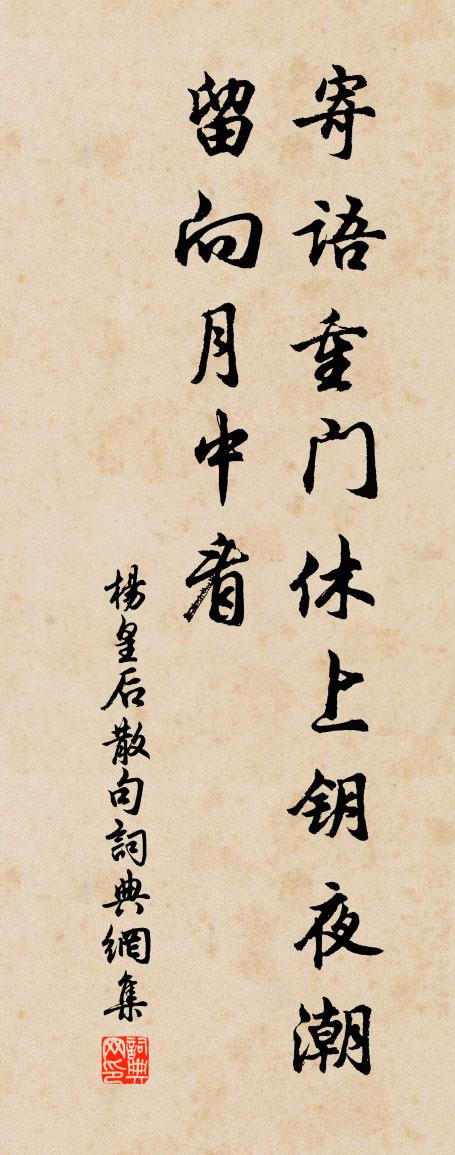 寄语重门休上钥夜潮
留向月中看
楊皇后散句詞典網集
詞典网印